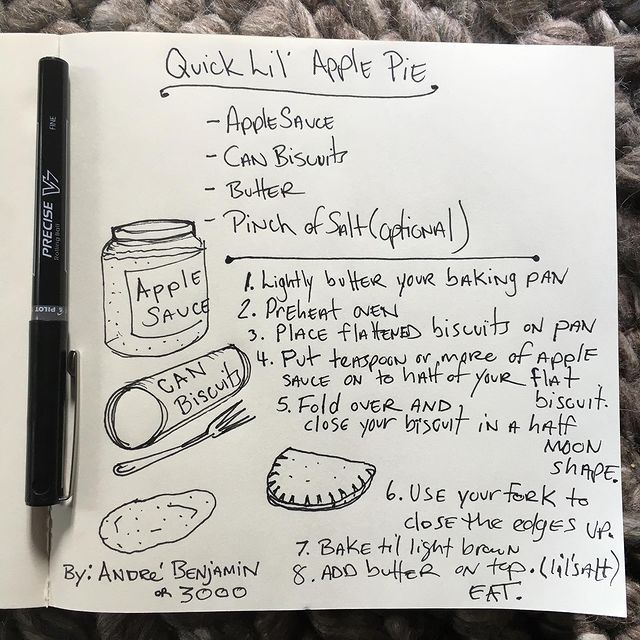 Quick Lil' Apple Pie
- Apple Sauce
- Can Biscuits
- Butter
- Pinch of Salt (optional)
1. Lightly butter your baking pan
2. Preheat oven
3. Place flattened biscuits on pan
4. Put teaspoon or more of apple
sauce on to half of your flat
biscuit.
5. Fold over and
close your biscuit in a half
moon
shape.
6. Use your fork to
close the edges up.
7. Bake til light brown
8. Add butter on top. (lil' salt)
EAT.
Apple
Sauce
Can
Biscuits
By: André Benjamin
or 3000
PRECISE V7
Rolling Ball
FINE
PILOT